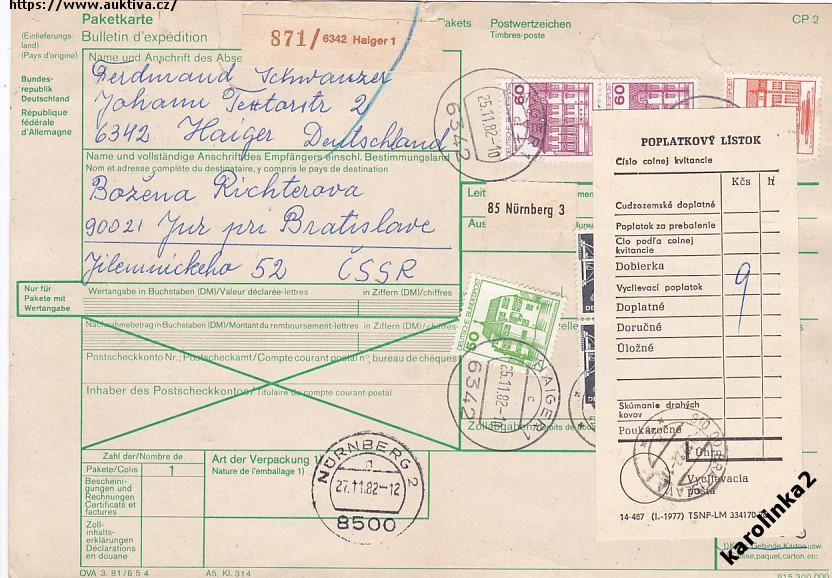 https://www.auktiva.cz/
Paketkarte
Bulletin d'expédition
(Einlieferungs-
land)
(Pays d'origine)
Bundes-
republik
Deutschland
République
fédérale
d'Allemagne
871/ 6342 Haiger 1
Postwertzeichen
Timbres-poste
CP 2
Name und Anschrift des Abse
Ferdinand Schwanzer
Johann Textorstr 2
6342 Haiger Deutschland
Name und vollständige Anschrift des Empfängers einschl. Bestimmungsland
Nom et adresse complète du destinataire, y compris le pays de destination
Božena Richterova
90021 Jur pri Bratislave
Jilemnickeho 52 ČSSR
Nur für
Pakete mit
Wertangabe
Wertangabe in Buchstaben (DM)/Valeur déclarée-lettres
in Ziffern (DM)/chiffres
Nachnahmebetrag in Buchstaben (DM)/Montant du remboursement-lettres
in Ziffern (DM)/chiffres
Postscheckkonto Nr.; Postscheckamt/Compte courant postal n°, bureau de chèques
Inhaber des Postscheckkontos/Titulaire du compte courant postal
Zahl der/Nombre de
Pakete/Colis
1
Bescheini-
gungen und
Rechnungen
Certificats et
factures
Zoll-
inhalts-
erklärungen
Déclarations
en douane
Art der Verpackung 1)
Nature de l'emballage 1)
NÜRNBERG 2
n
27.11.82-12
8500
OVA 3. 81/6 5 4
A5. Kl. 314
25.11.82-10
6342
60
60
DEUTSCHE BUNDESPOST
Leit
85 Nürnberg 3
Aus
50
DEUTSCHE BUNDESPOST
HAIGER 1
c
25.11.82-10
6342
Zollangaben
POPLATKOVÝ LÍSTOK
Číslo colnej kvitancie
Kčs
H
Cudzozemské doplatné
Poplatok za prebalenie
Clo podľa colnej
kvitancie
Dobierka
Vyclievací poplatok
9
Doplatné
Doručné
Úložné
Skúmanie drahých
kovov
Poukázočné
Úhrn
Vycljevacia
pošta
14-487 (I.-1977) TSNP-LM 334170
karolinka2
915 300 000